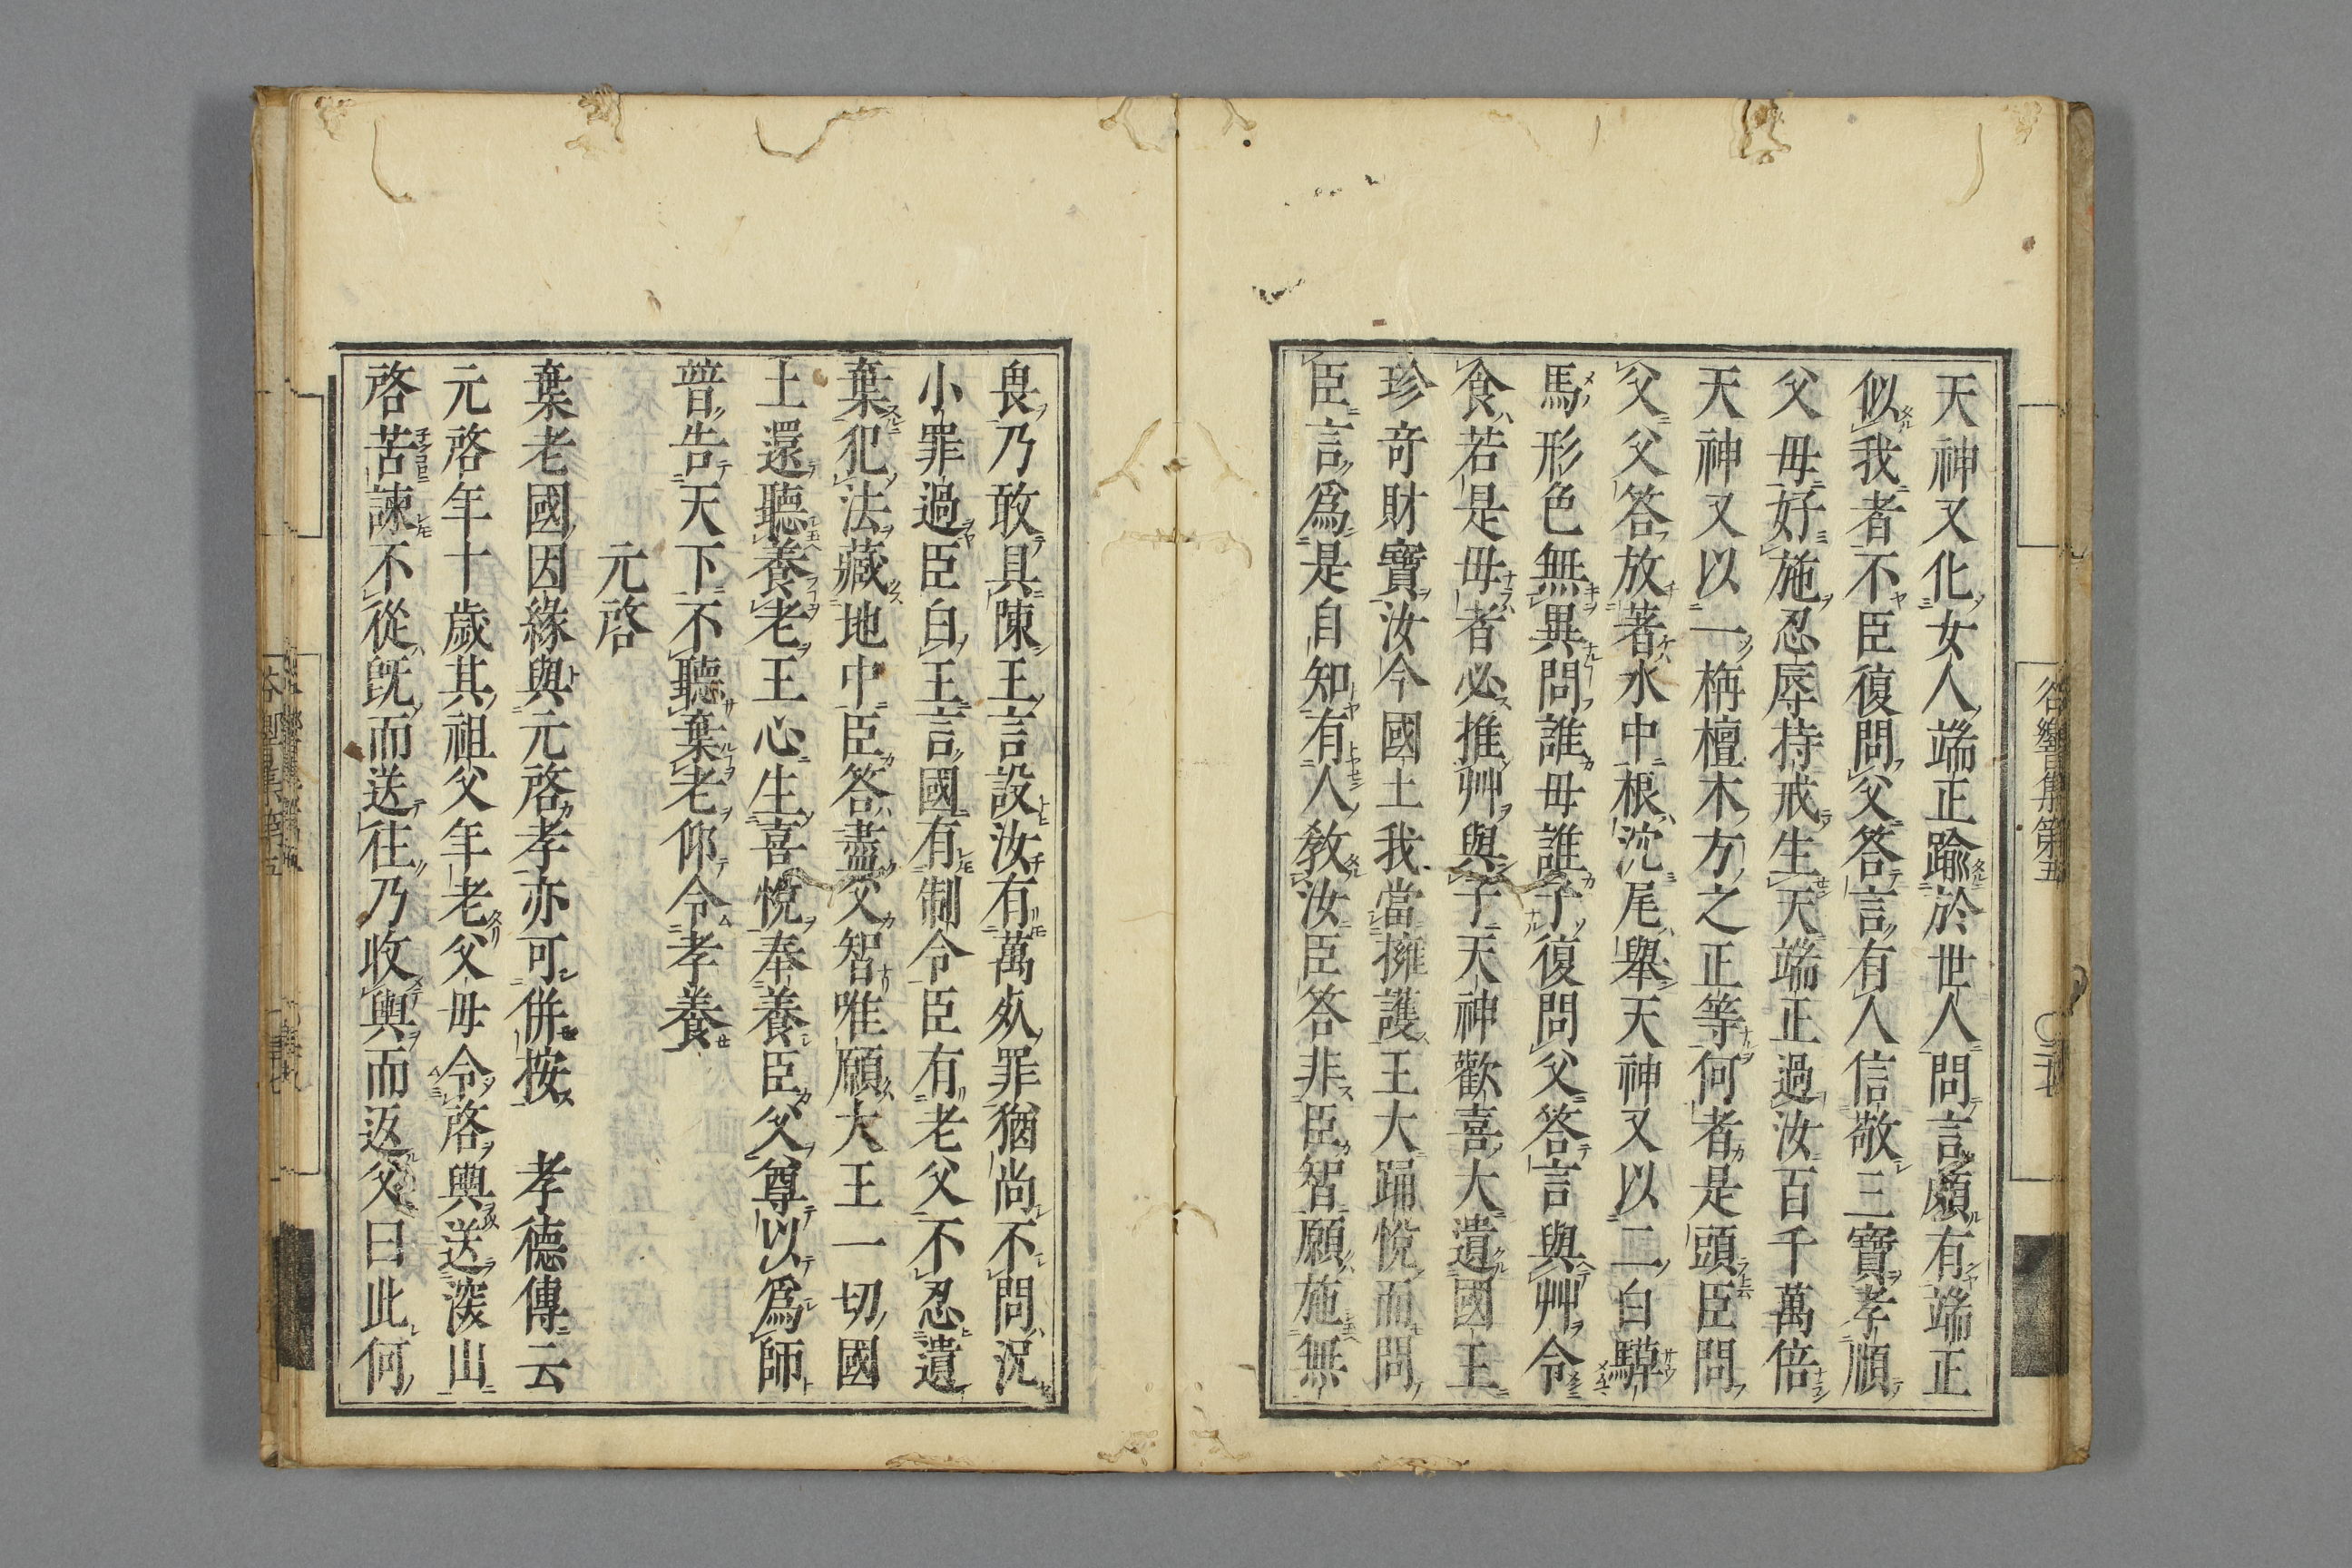 天神又化女人端正踰於世人問言頗有端正
似我者不臣復問父答言有人信敬三寶孝順
父母好施忍辱持戒生天端正過汝百千萬倍
天神又以一栴檀木方之正等何者是頭臣問
父父答放著水中根沈尾舉天神又以二白騲
馬形色無異問誰母誰子復問父答言與艸令
食若是母者必推艸與子天神歡喜大遺國王
珍奇財寶汝今國土我當擁護王大踊悅而問
臣言爲是自知有人教汝臣答非臣智願施無
畏乃敢具陳王言設汝有萬死罪猶尚不問況
小罪過臣白王言國有制令臣有老父不忍遺
棄犯法藏地中臣答盡父智唯願大王一切國
土還聽養老王心生喜悅奉養臣父尊以爲師
普告天下不聽棄老仰令孝養
元啓
棄老國因緣與元啓孝亦可併按　孝德傳云
元啓年十歲其祖父年老父母令啓輿送深山
啓苦諫不從旣而送往乃收輿而返父曰此何
谷響集第五